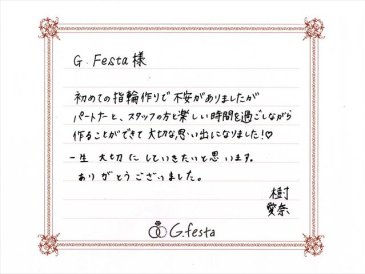 G.Festa様
初めての指輪作りで不安がありましたが
パートナーと、スタッフの方と楽しい時間を過ごしながら
作ることができて大切な思い出になりました!♡
一生大切にしていきたいと思います。
ありがとうございました。
樹
愛奈
G.festa